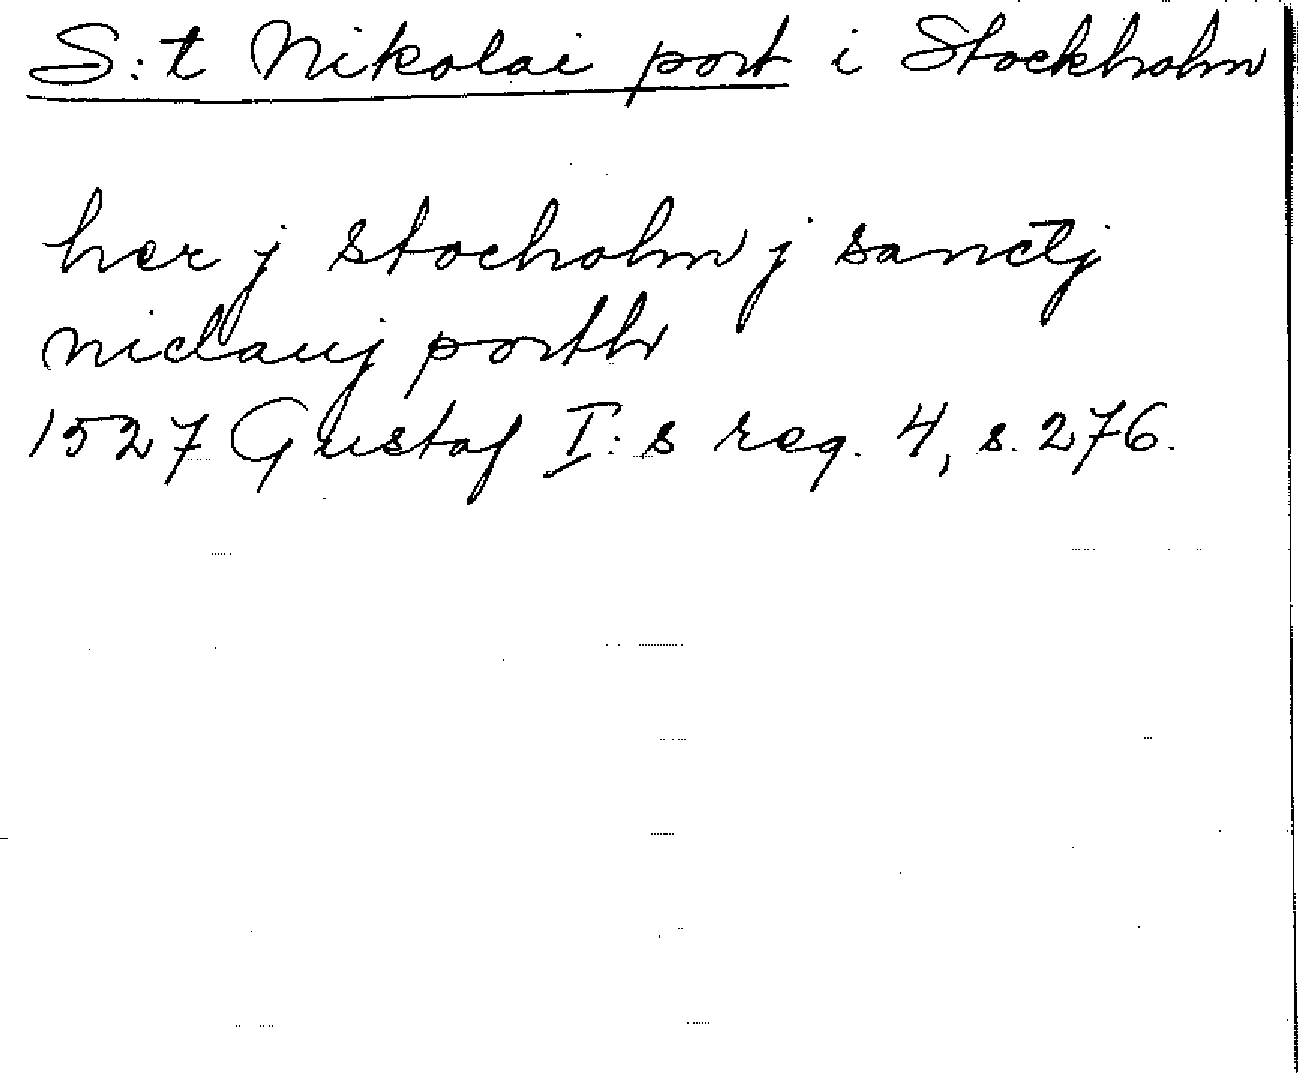 S:t Nikolai port i Stockholm
her j stocholm j sanctj
niclauj porth
1527 Gustaf I:s reg. 4, s. 276.